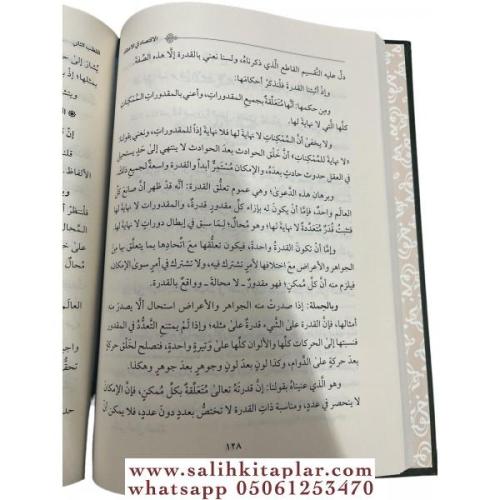 القطب الثاني
الاقتصاد في الاعتقاد
دلّ عليه التقسيم القاطع الَّذي ذكرناهُ، ولسنا نعني بالقدرة إلَّا هذه الصِّفةَ.
وإذْ أثبتنا القدرة فلْنذكُرْ أحكامَها:
ومن حكمها: أنَّها مُتعلِّقة بجميع المقدورات، وأعني بالمقدورات المُمْكِناتِ
كلَّها الَّتي لا نهايةَ لها.
ولا يخفىٰ أنَّ المُمْكِناتِ لا نهايةَ لها، فلا نهايةَ إذاً للمقدورات، ونعني بقولنا:
«لا نهايةَ للمُمْكِنات» أنَّ خَلْق الحوادث بعدَ الحوادث لا ينتهي إلىٰ حدٍّ يستحيل
في العقل حدوث حادثٍ بعدَهُ، والإمكان مُستمرٌّ أبداً والقدرة واسعةٌ لجميع ذلك.
وبرهان هذه الدَّعوىٰ؛ وهي عموم تعلُّق القدرة: أنَّه قد ظهر أنَّ صانع كلِّ
العالَم واحدٌ، فإمَّا أنْ يكونَ له بإزاء كلِّ مقدور قدرةٌ، والمقدورات لا نهايةَ لها؛
فتثبتُ قُدَرٌ مُتعدِّدةٌ لا نهايةَ لها، وهو مُحالٌ؛ لما سبق في إبطال دوراتٍ لا نهايةَ لها.
وإمَّا أنْ تكونَ القدرة واحدةً، فيكون تعلُّقها معَ اتِّحادها بما يتعلَّق به من
الجواهر والأعراض معَ اختلافها لأمرٍ تشترك فيه، ولا تشترك في أمرٍ سوىٰ الإمكان،
فيلزم منه أنَّ كلَّ مُمكنٍ: فهو مقدورٌ ـ لا محالةَ ـ وواقعٌ بالقدرة.
وبالجملة: إذا صدرتْ منه الجواهر والأعراض استحال ألَّا يصدرَ منه
أمثالها، فإنَّ القدرة علىٰ الشَّيء قدرةٌ علىٰ مثله؛ وإذا لمْ يمتنع التَّعدُّد في المقدور
فنسبتها إلىٰ الحركات كلِّها والألوان كلِّها علىٰ وَتيرةٍ واحدةٍ، فتصلح لخَلْق حركةٍ
بعدَ حركةٍ علىٰ الدَّوام، وكذا لونٍ بعدَ لونٍ وجوهرٍ بعدَ جوهرٍ وهكذا.
وهو الَّذي عنيناهُ بقولنا: إنَّ قدرتَهُ تعالىٰ مُتعلِّقةٌ بكلِّ مُمكنٍ، فإنَّ الإمكان
لا ينحصر في عددٍ، ومناسبة ذات القدرة لا تختصُّ بعددٍ دونَ عددٍ، فلا يمكن أنْ
١٢٨
www.salihkitaplar.com
whatsapp 05061253470